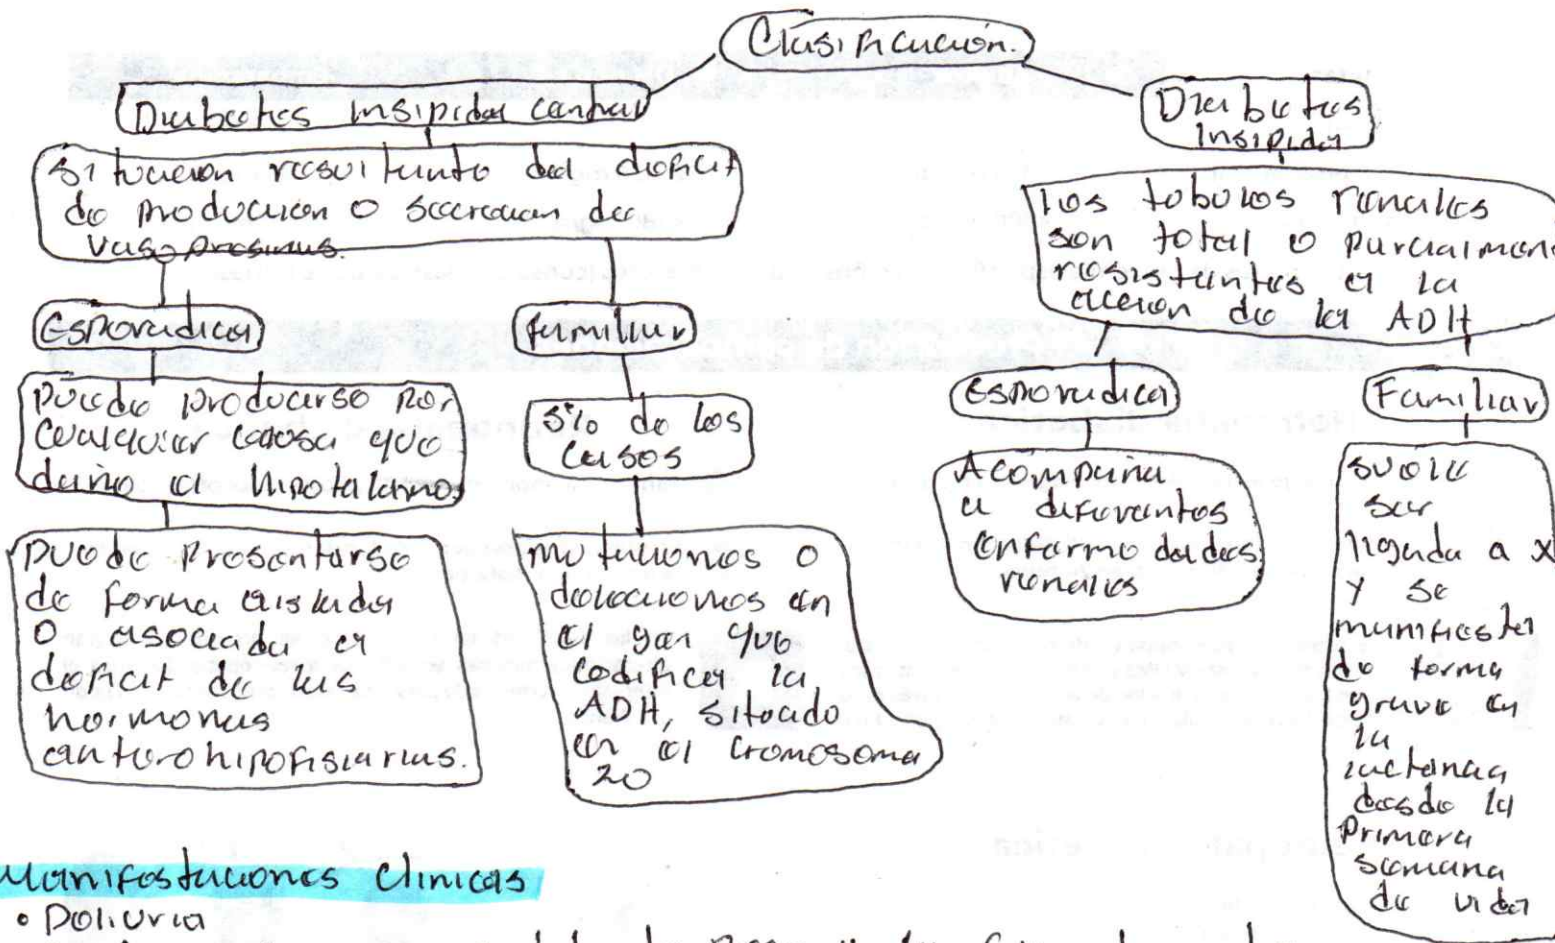 Clasificación.
Diabetes insipida central
Situación resultante del deficit
de producción o secreción de
vasopresinas.
Esporadica
puede producirse por
cualquier causa que
dañe el hipotalamos
puede presentarse
de forma aislada
o asociada a
deficit de las
hormonas
anterohipofisiarias.
familiar
5% de los
casos
mutaciones o
deleciones en
el gen que
codifica la
ADH, situado
en el cromosoma
20
Diabetes
Insipida
los tobulos renales
son total o parcialmen
resistentes a la
accion de la ADH
Esporadica
Acompaña
a diferentes
enfermedades
renales
Familiar
suele
ser
ligada a x
y se
manifiesta
de forma
grave en
la
lactancia
desde la
primera
semana
de vida
Manifestaciones clinicas
• Poliuria